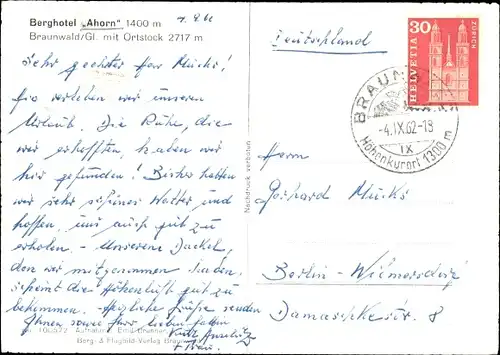 Berghotel „Ahorn" 1400 m
Braunwald/Gl. mit Ortstock 2717 m
Sehr geehrter Herr Mucks!
verleben wir unseren
Urlaub. Die Ruhe, die
wir erhofften, haben wir
hier gefunden! Bisher hatten
wir sehr schönes Wetter und
hoffen, uns auch gut zu
erholen - Unserem Dackel,
den wir mitgenommen haben,
scheint die Höhenluft gut zu
bekommen. Herzliche Grüße senden
Ihnen sowie Ihrer lieben Gattin
Kurt
+ Frau.
Aufnahme Emil Brunner,
Berg- & Flugbild-Verlag Braunwald
Nachdruck verboten
Deutschland
HELVETIA
30
ZÜRICH
BRAUNWALD
-4.IX.62-18
IX
Höhenkurort 1300 m
Herrn
Gerhard Mucks
Berlin-Wilmersdorf
Damaschkestr. 8